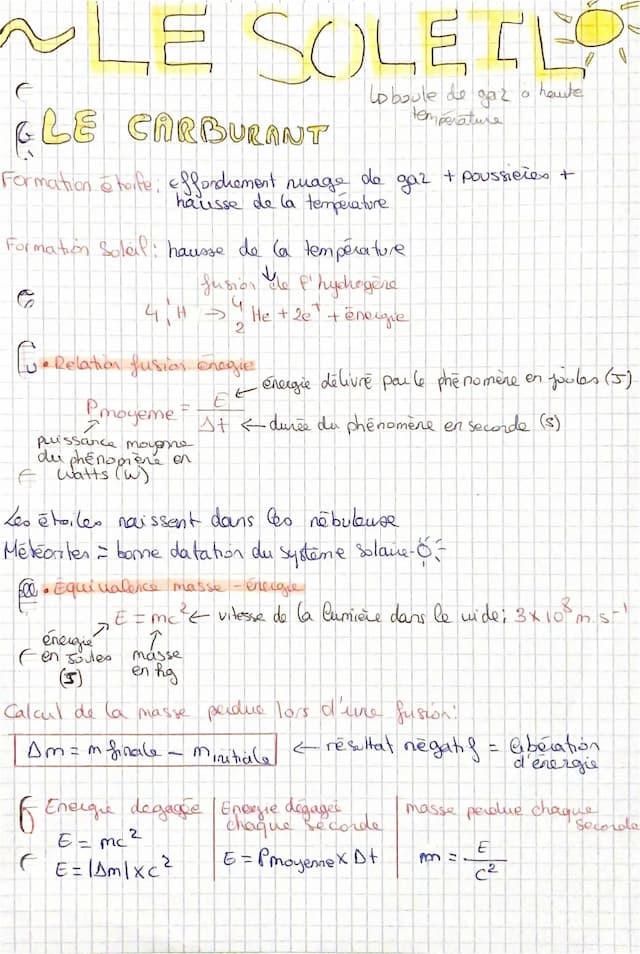 ~ LE SOLEIL
↳ boule de gaz à haute
température
LE CARBURANT
Formation étoile : effondrement nuage de gaz + poussières +
hausse de la température
Formation Soleil : hausse de la température
↓
fusion de l'hydrogène
4 ¹₁H → ⁴₂He + 2e⁺ + énergie
• Relation fusion énergie
Pmoyenne = E / Δt
E ← énergie délivré par le phénomène en joules (J)
Δt ← durée du phénomène en seconde (s)
puissance moyenne
du phénomène en
Watts (W)
Les étoiles naissent dans les nébuleuse
Météorites = bonne datation du système solaire
• Équivalence masse - énergie
E = mc² ← vitesse de la lumière dans le vide : 3 × 10⁸ m.s⁻¹
énergie
en Joules
(J)
masse
en kg
Calcul de la masse perdue lors d'une fusion :
Δm = m finale - m initiale ← résultat négatif = libération
d'énergie
Energie dégagée
E = mc²
E = |Δm| × c²
Energie dégagée
chaque seconde
E = Pmoyenne × Δt
masse perdue chaque
seconde
m = E / c²